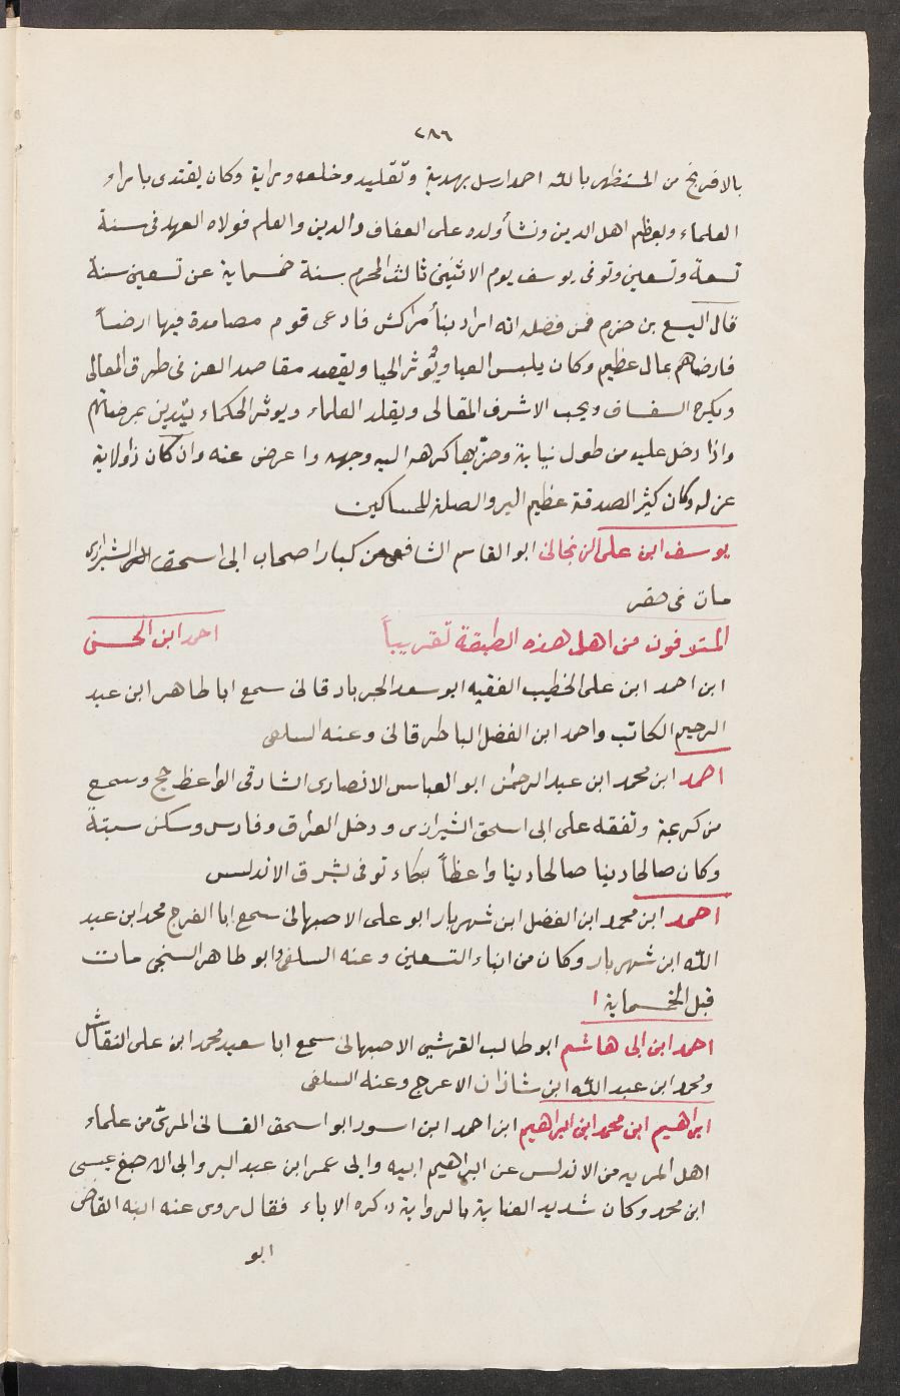 ٢٨٦
بالافرنج من المستظهر بالله احمد ارسل بهدية وتقليد وخلعه وراية وكان يقتدى باراء
العلماء ويعظم اهل الدين ونشأ ولده على العفاف والدين والعلم فولاه العهد فى سنة
تسعة وتسعين وتوفى يوسف يوم الاثنين ثالث المحرم سنة خمسماية عن تسعين سنة
قال اليسع بن حزم فمن فضله انه اراد بنأ مراكش فادعى قوم مصامدة فيها ارضاً
فارضاهم بمال عظيم وكان يلبس العبا ويُوثر الحيا ويقصد مقاصد العز فى طرق المعالى
ويكره السفساف ويحب الاشرف المتعالى ويقلد العلماء ويوثر الحكماء يتدين بمرضاتهم
واذا دخل عليه من طول ثيابة وجرّبها كره اليه وجهه واعرض عنه وان كان ذو ولاية
عزله وكان كثير الصدقة عظيم البر والصلة للمساكين
يوسف ابن على الزنجانى ابو القاسم الشافعى من كبار اصحاب ابى اسحق الشيرازى
مات فى صفر
المتوفون من اهل هذه الطبقة تقريباً احمد ابن الحسن
ابن احمد ابن على الخطيب الفقيه ابو سعد الجرباذقانى سمع ابا طاهر ابن عبد
الرحيم الكاتب واحمد ابن الفضل الباطرقانى وعنه السلفى
احمد ابن محمد ابن عبد الرحمٰن ابو العباس الانصارى الشارقى الواعظ حج وسمع
من كريمة وتفقه على ابى اسحق الشيرازى ودخل العراق وفارس وسكن سبتةً
وكان صالحا دينا صالحا دينا واعظاً بكاء توفى بشرق الاندلس
احمد ابن محمد ابن الفضل ابن شهريار ابو على الاصبهانى سمع ابا الفرج محمد ابن عبد
الله ابن شهريار وكان من ابناء التسعين وعنه السلفى وابو طاهر السنجى مات
قبل الخمسماية
احمد ابن ابى هاشم ابو طالب القرشى الاصبهانى سمع ابا سعيد محمد ابن على النقاش
ومحمد ابن عبد الله ابن شاذان الاعرج وعنه السلفى
ابراهيم ابن محمد ابن ابراهيم ابن احمد ابن اسود ابو اسحق الغسانى المرىّ من علماء
اهل المريه من الاندلس عن ابراهيم ابيه وابى عمر ابن عبد البر وابى الاصبغ عيسى
ابن محمد وكان شديد العناية بالرواية ذكره الاباء فقال روى عنه ابنه القاضى
ابو